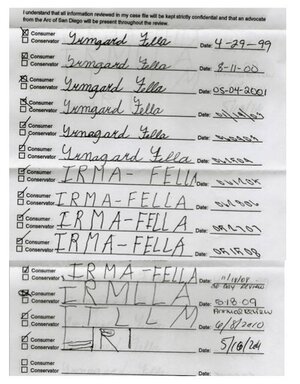 I understand that all information reviewed in my case file will be kept strictly confidential and that an advocate
from the Arc of San Diego will be present throughout the review.
Consumer
Conservator Irmgard Fella Date: 4-29-99
Consumer
Conservator Irmgard Fella Date: 8-11-00
Consumer
Conservator Irmgard Fella Date: 05-04-2001
Consumer
Conservator Irmgard Fella Date:
Consumer
Conservator Irmagard Fella Date:
Consumer
Conservator Irmagard Fella Date:
Consumer
Conservator IRMA-FELLA Date:
Consumer
Conservator IRMA-FELLA Date:
Consumer
Conservator IRMA-FELLA Date:
Consumer
Conservator IRMA-FELLA Date: 11/18/08
Consumer
Conservator IRMLLA Date: 5-18-09
Consumer
Conservator Date: 6/8/2010
Consumer
Conservator Date:
Consumer
Conservator Date: